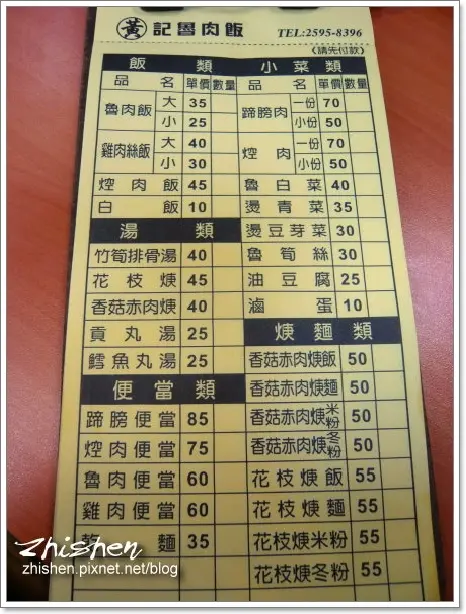 黃 記魯肉飯 TEL:2595-8396
(請先付款)
飯類
品名 單價 數量
魯肉飯 大 35
小 25
雞肉絲飯 大 40
小 30
焢肉飯 45
白飯 10
湯類
竹筍排骨湯 40
花枝焿 45
香菇赤肉焿 40
貢丸湯 25
鱈魚丸湯 25
便當類
蹄膀便當 85
焢肉便當 75
魯肉便當 60
雞肉便當 60
麵 35
小菜類
品名 單價 數量
蹄膀肉 一份 70
小份 50
焢肉 一份 70
小份 50
魯白菜 40
燙青菜 35
燙豆芽菜 30
魯筍絲 30
油豆腐 25
滷蛋 10
焿麵類
香菇赤肉焿飯 50
香菇赤肉焿麵 50
香菇赤肉焿米粉 50
香菇赤肉焿冬粉 50
花枝焿飯 55
花枝焿麵 55
花枝焿米粉 55
花枝焿冬粉 55
Zhishen
zhishen.pixnet.net/blog